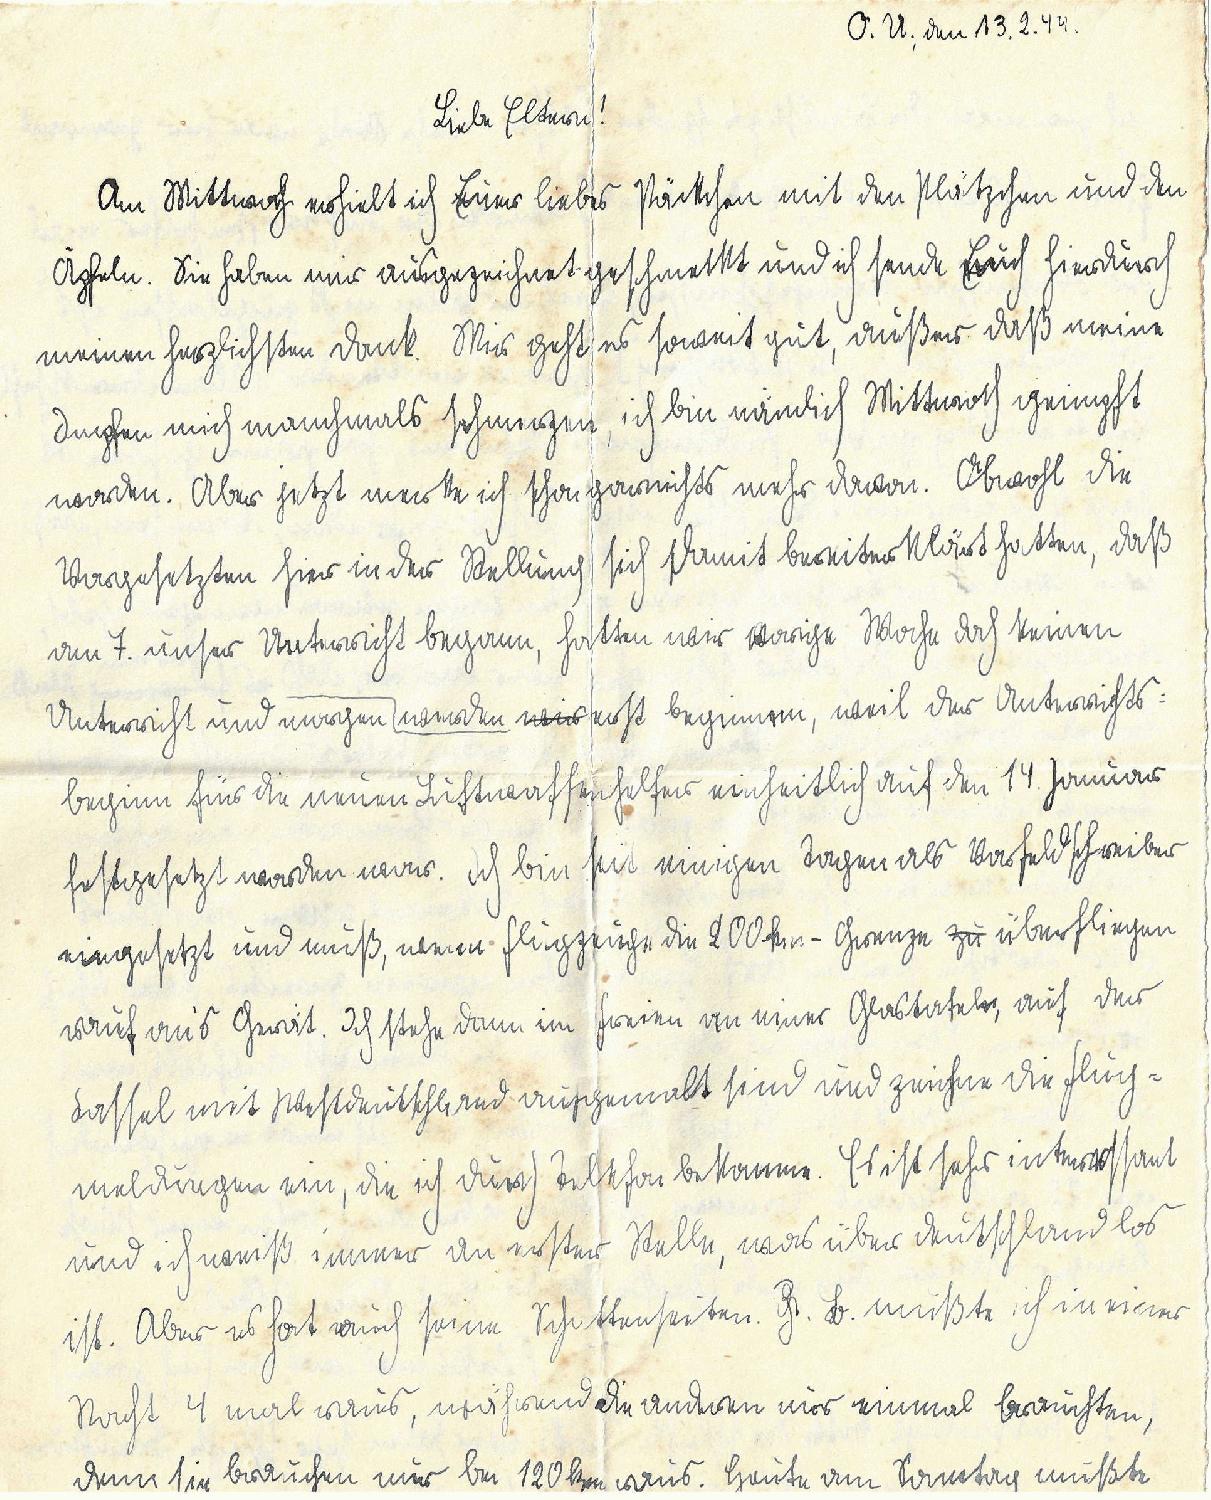 O. U., den 13.2.44.
Liebe Eltern!
Am Mittwoch erhielt ich Euer liebes Päckchen mit den Plätzchen und den
Äpfeln. Sie haben mir ausgezeichnet geschmeckt und ich sende Euch hierdurch
meinen herzlichsten Dank. Mir geht es soweit gut, außer daß meine
Impfen mich manchmals schmerzen, ich bin nämlich Mittwoch geimpft
worden. Aber jetzt merke ich schon garnichts mehr davon. Obwohl die
Vorgesetzten hier in der Stellung sich damit bereiterklärt hatten, daß
am 7. unser Unterricht begann, hatten wir vorige Woche doch keinen
Unterricht und morgen werden wir erst beginnen, weil der Unterrichts=
beginn für die neuen Luftwaffenhelfer einheitlich auf den 14. Januar
festgesetzt worden war. Ich bin seit einigen Tagen als Vorfeldschreiber
eingesetzt und muß, wenn Flugzeuge die 200 km-Grenze zu überfliegen
rauf ans Gerät. Ich stehe dann im Freien an einer Glastafel, auf der
Kassel mit Westdeutschland aufgemalt sind und zeichne die Flug-
meldungen ein, die ich durch Telefon bekomme. Es ist sehr interessant
und ich weiß immer an erster Stelle, was über Deutschland los
ist. Aber es hat auch seine Schattenseiten. Z. B. mußte ich in einer
Nacht 4 mal raus, während die anderen nur einmal brauchten,
denn sie brauchen nur bei 120 km raus. Heute am Sonntag mußte